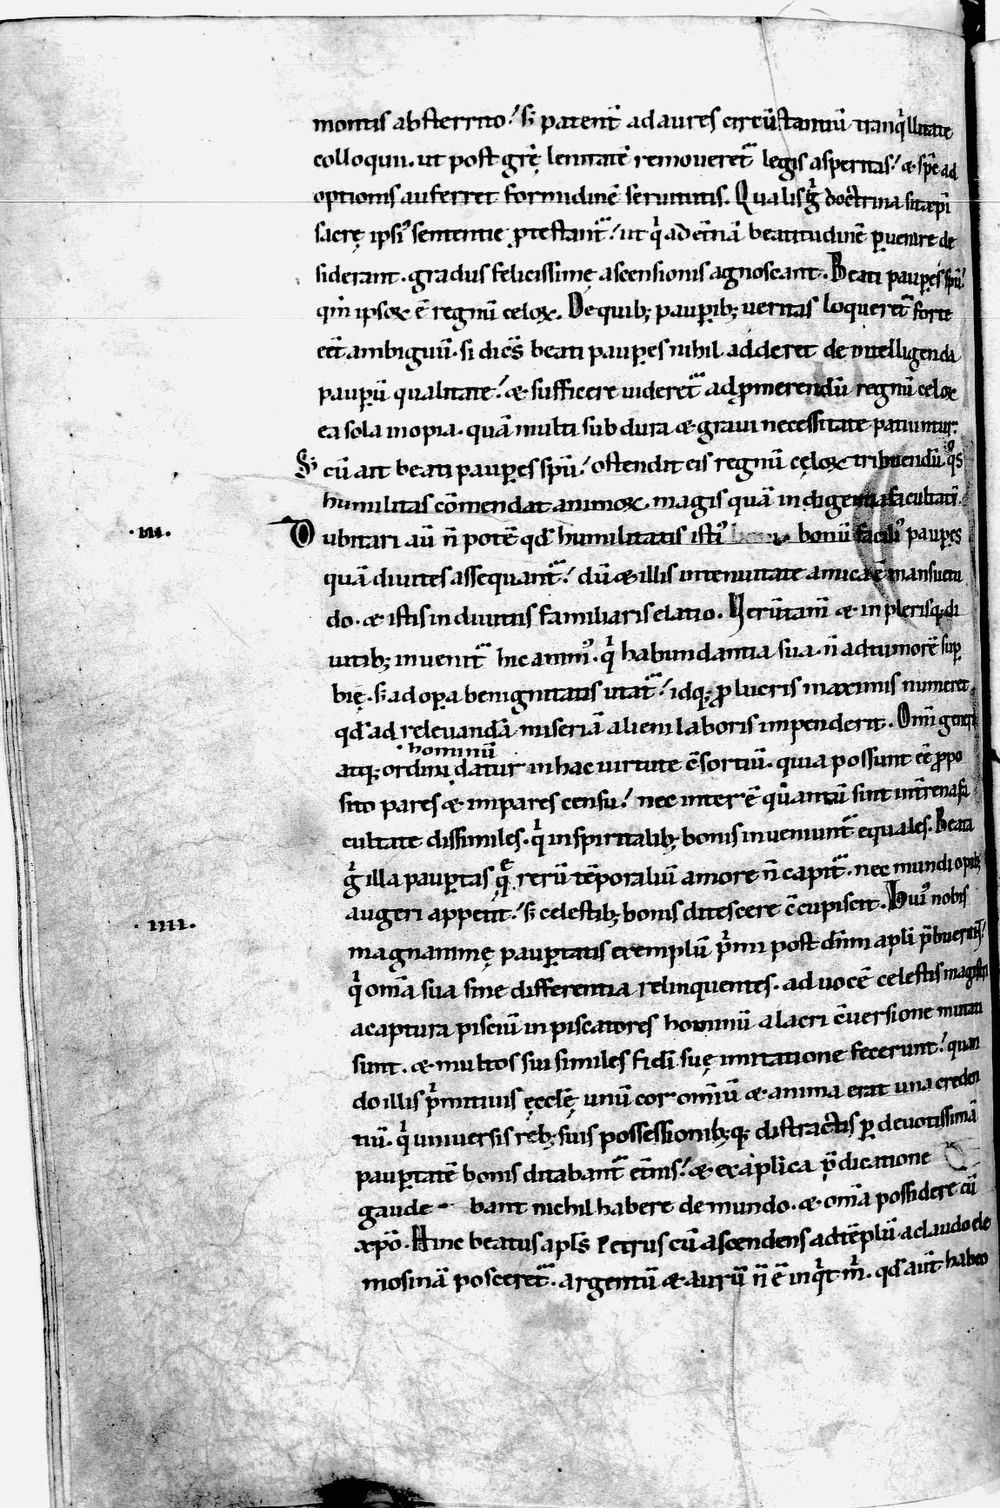 montis absterrito. s; patenti ad aures circūstantiū tranq̇llitate
colloquii. ut post gr̄ę lenitatē removeret᷑ legis asperitas. & sp̄c ad
optionis auferret formidinē servitutis. Qualis g̊ doctrina sit xp̄i
sacrę ipsi᷒ sententie p̱testant᷑. ut q̇ ad et̄nā beatitudinē p̱venire de
siderant. gradus felicissimę ascensionis agnoscant. Beati paup̱es sp̄ū.
qm̄ ipsoꝝ ē regnū celoꝝ. De quib; paup̱ib; veritas loqueret᷑ forte
eēt ambiguū. si dicēs beati paup̱es nihil adderet de intelligenda
paup̱ū qualitate. & sufficere videret᷑ ad ꝓmerendū regnū celoꝝ
ea sola inopia. quā multi sub dura & gravi necessitate patiuntur.
S; cū ait beati paup̱es sp̄ū. ostendit eis regnū cęloꝝ tribuendū q̊s
humilitas cōmendat animoꝝ. magis quā indigentia facultatū.
.III.
Dubitari aū n̄ potē qd̄ humilitatis isti᷒ bonū facili᷒ paup̱es
quā divites assequant᷑. dū & illis in tenuitate amica ē mansuetu
do. & istis in divitiis familiaris elatio. Verūtam̄ & in plerisq; di
vitib; invenit᷑ hic anim᷒. q̇ habundantia sua. n̄ ad tumorē sup̱
bię. s; ad op̱a benignitatis utat᷑. idq; ꝓ lucris maximis numeret
qd̄ ad relevandā miseriā alieni laboris impenderit. Om̄i gen̄i
hominū
atq; ordini datur in hac virtute c̄sortiū. quia possunt eē ꝓpo
sito pares & impares censu. nec inter ē quantū sint in t̄rena fa
cultate dissimiles. q̇ in spiritalib; bonis inveniunt᷑ equales. Beata
g̊ illa paup̱tas q̄ rerū tēporaliū amore n̄ capit᷑. nec mundi opib;
augeri appetit. s; celestib; bonis ditescere c̄cupiscit. Hui᷒ nobis
.IIII.
magnanimę paup̱tatis exemplū p̓mi post dn̄m apl̄i p̄buerunt.
q̇ om̄ia sua sine differentia relinquentes. ad vocē celestis magistri
a captura pisciū in piscatores hominū alacri c̄versione mutati
sunt. & multos sui similes fidei suę imitatione fecerunt. quan
do illis p̓mitivis ęcclę̄ unū cor omīū & anima erat una creden
tiū. q̇ universis reb; suis possessionib;q; distractis p̱ devotissimā
paup̱tatē bonis ditabant᷑ et̄nis. & ex ap̄lica p̄dicatione
gaude - bant nichil habere de mundo. & om̄ia possidere cū
xp̄o. Hinc beatus apl̄s Petrus cū ascendens ad tēplū a claudo ele
mosinā posceret᷑. argentū & aurū n̄ ē inq̇t m̓. qd̄ aut̄ habeo